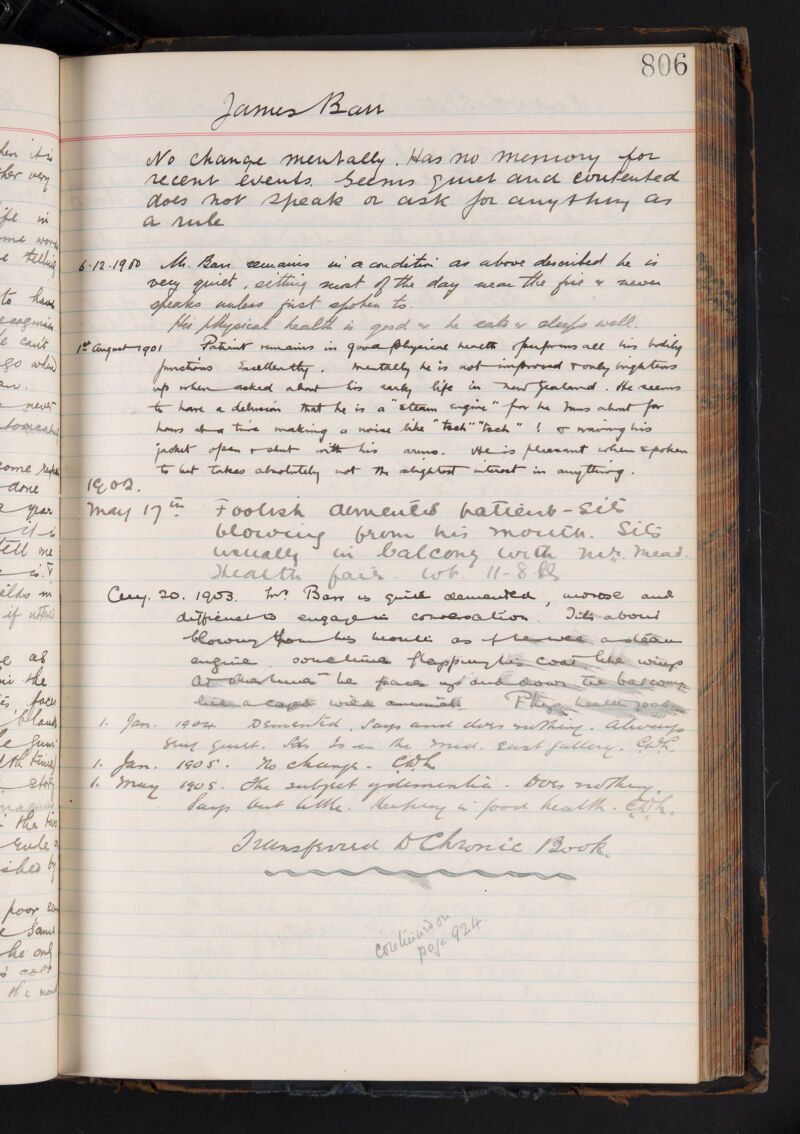 806
James Barr
No change mentally. Has no memory for
recent events. Seems quiet and contented
does not speak or ask for anything as
a rule
6.12.1900 Mr. Barr remains in a condition as above described he is
very quiet, sitting most of the day near the fire & never
speaks unless first spoken to.
His physical health is good & he eats & sleeps well.
1st August 1901 Patient remains in good physical health performs all his bodily
functions excellently. Mentally he is not improved & only brightens
up when asked about his early life in New Zealand. He seems
to have a delusion that he is a "steam engine" for he runs about for
hours at a time making a noise like "tsch" "tsch" ! & waving his
jacket open & shut with his arms. He is pleasant when spoken
to but takes absolutely not the slightest interest in anything.
1902.
May 17th Foolish demented patient - Sits
blowing from his mouth. Sits
usually in balcony with Mr. Mead.
Health fair. Wt. 11-8 lb
Aug. 20. 1903. Mr. Barr is quiet demented, morose and
difficult to engage in conversation. Sits about
blowing from his mouth as if he were a steam
engine, sometimes flapping his coat like wings
At other times he paces up and down the balcony
like a caged wild animal. Phys. health good
1. Jan. 1904 Demented. Says and does nothing. Always
very quiet. Is in the Med. East gallery. C.W.h.
1. Jan. 1905. No change. C.W.h
1. May 1905. The subject of dementia. Does nothing.
Says but little. Keeping in good health. C.W.h.
Transferred to Chronic Book.
continued on
page 924.